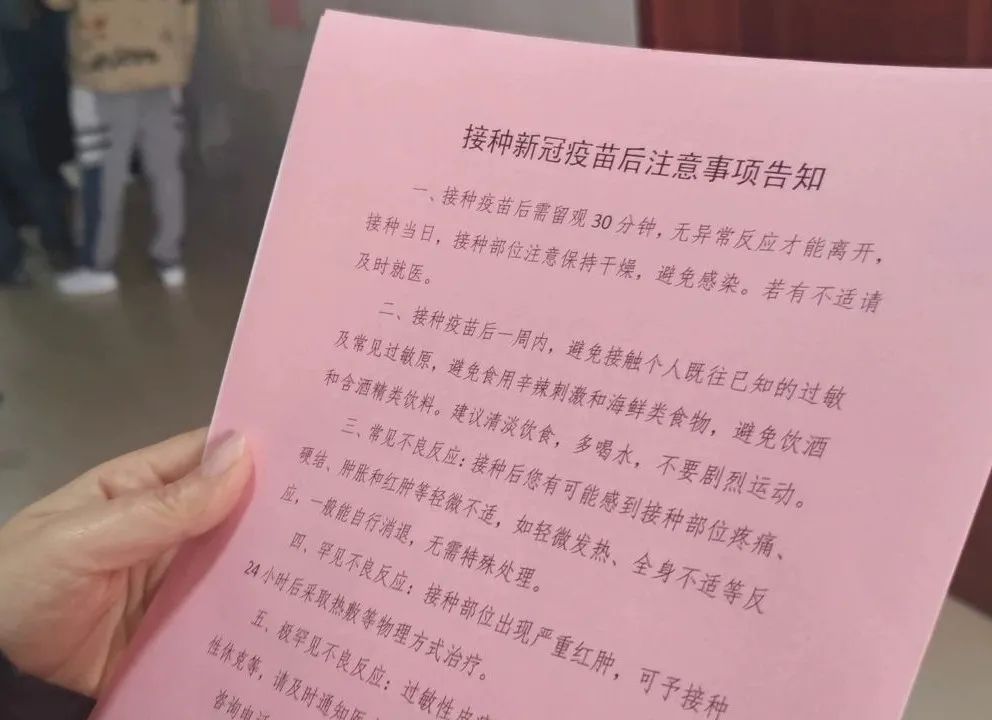 接种新冠疫苗后注意事项告知
一、接种疫苗后需留观30分钟，无异常反应才能离开，
接种当日，接种部位注意保持干燥，避免感染。若有不适请
及时就医。
二、接种疫苗后一周内，避免接触个人既往已知的过敏
及常见过敏原，避免食用辛辣刺激和海鲜类食物，避免饮酒
和含酒精类饮料。建议清淡饮食，多喝水，不要剧烈运动。
三、常见不良反应：接种后您有可能感到接种部位疼痛、
硬结、肿胀和红肿等轻微不适，如轻微发热、全身不适等反
应，一般能自行消退，无需特殊处理。
四、罕见不良反应：接种部位出现严重红肿，可予接种
24小时后采取热敷等物理方式治疗。
五、极罕见不良反应：过敏性
性休克等，请及时通知医
咨询电话